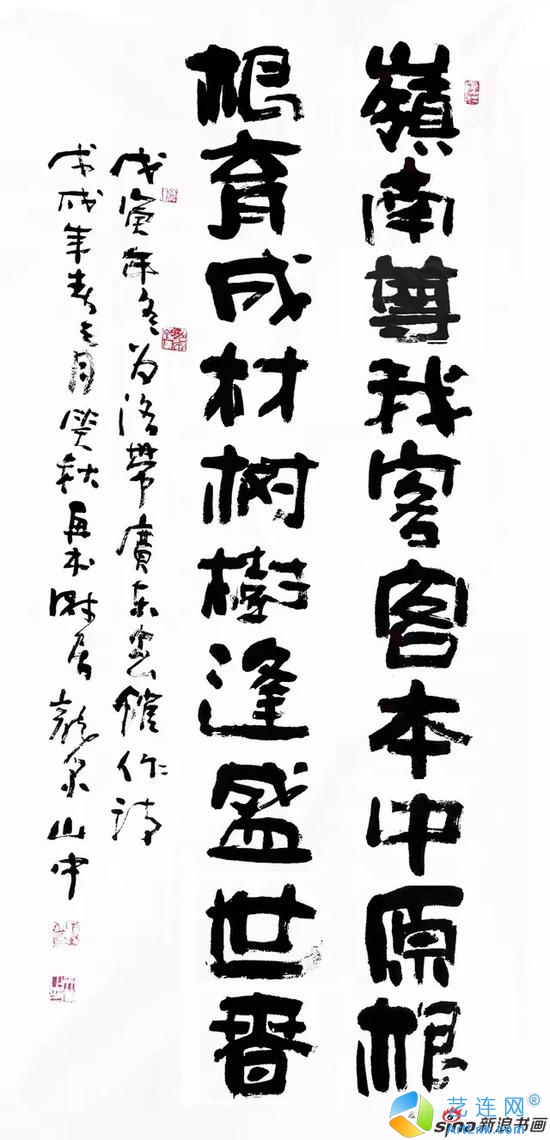 嶺南尊我客客本中原根
根育成材树樹逢盛世春
戊寅年冬为洛帶廣东会作诗
戊戌年春月秋再书时居龍泉山中
艺连网®
sina新浪书画